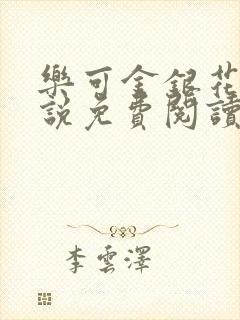 樂可金銀花
說免費閱讀
李雲澤